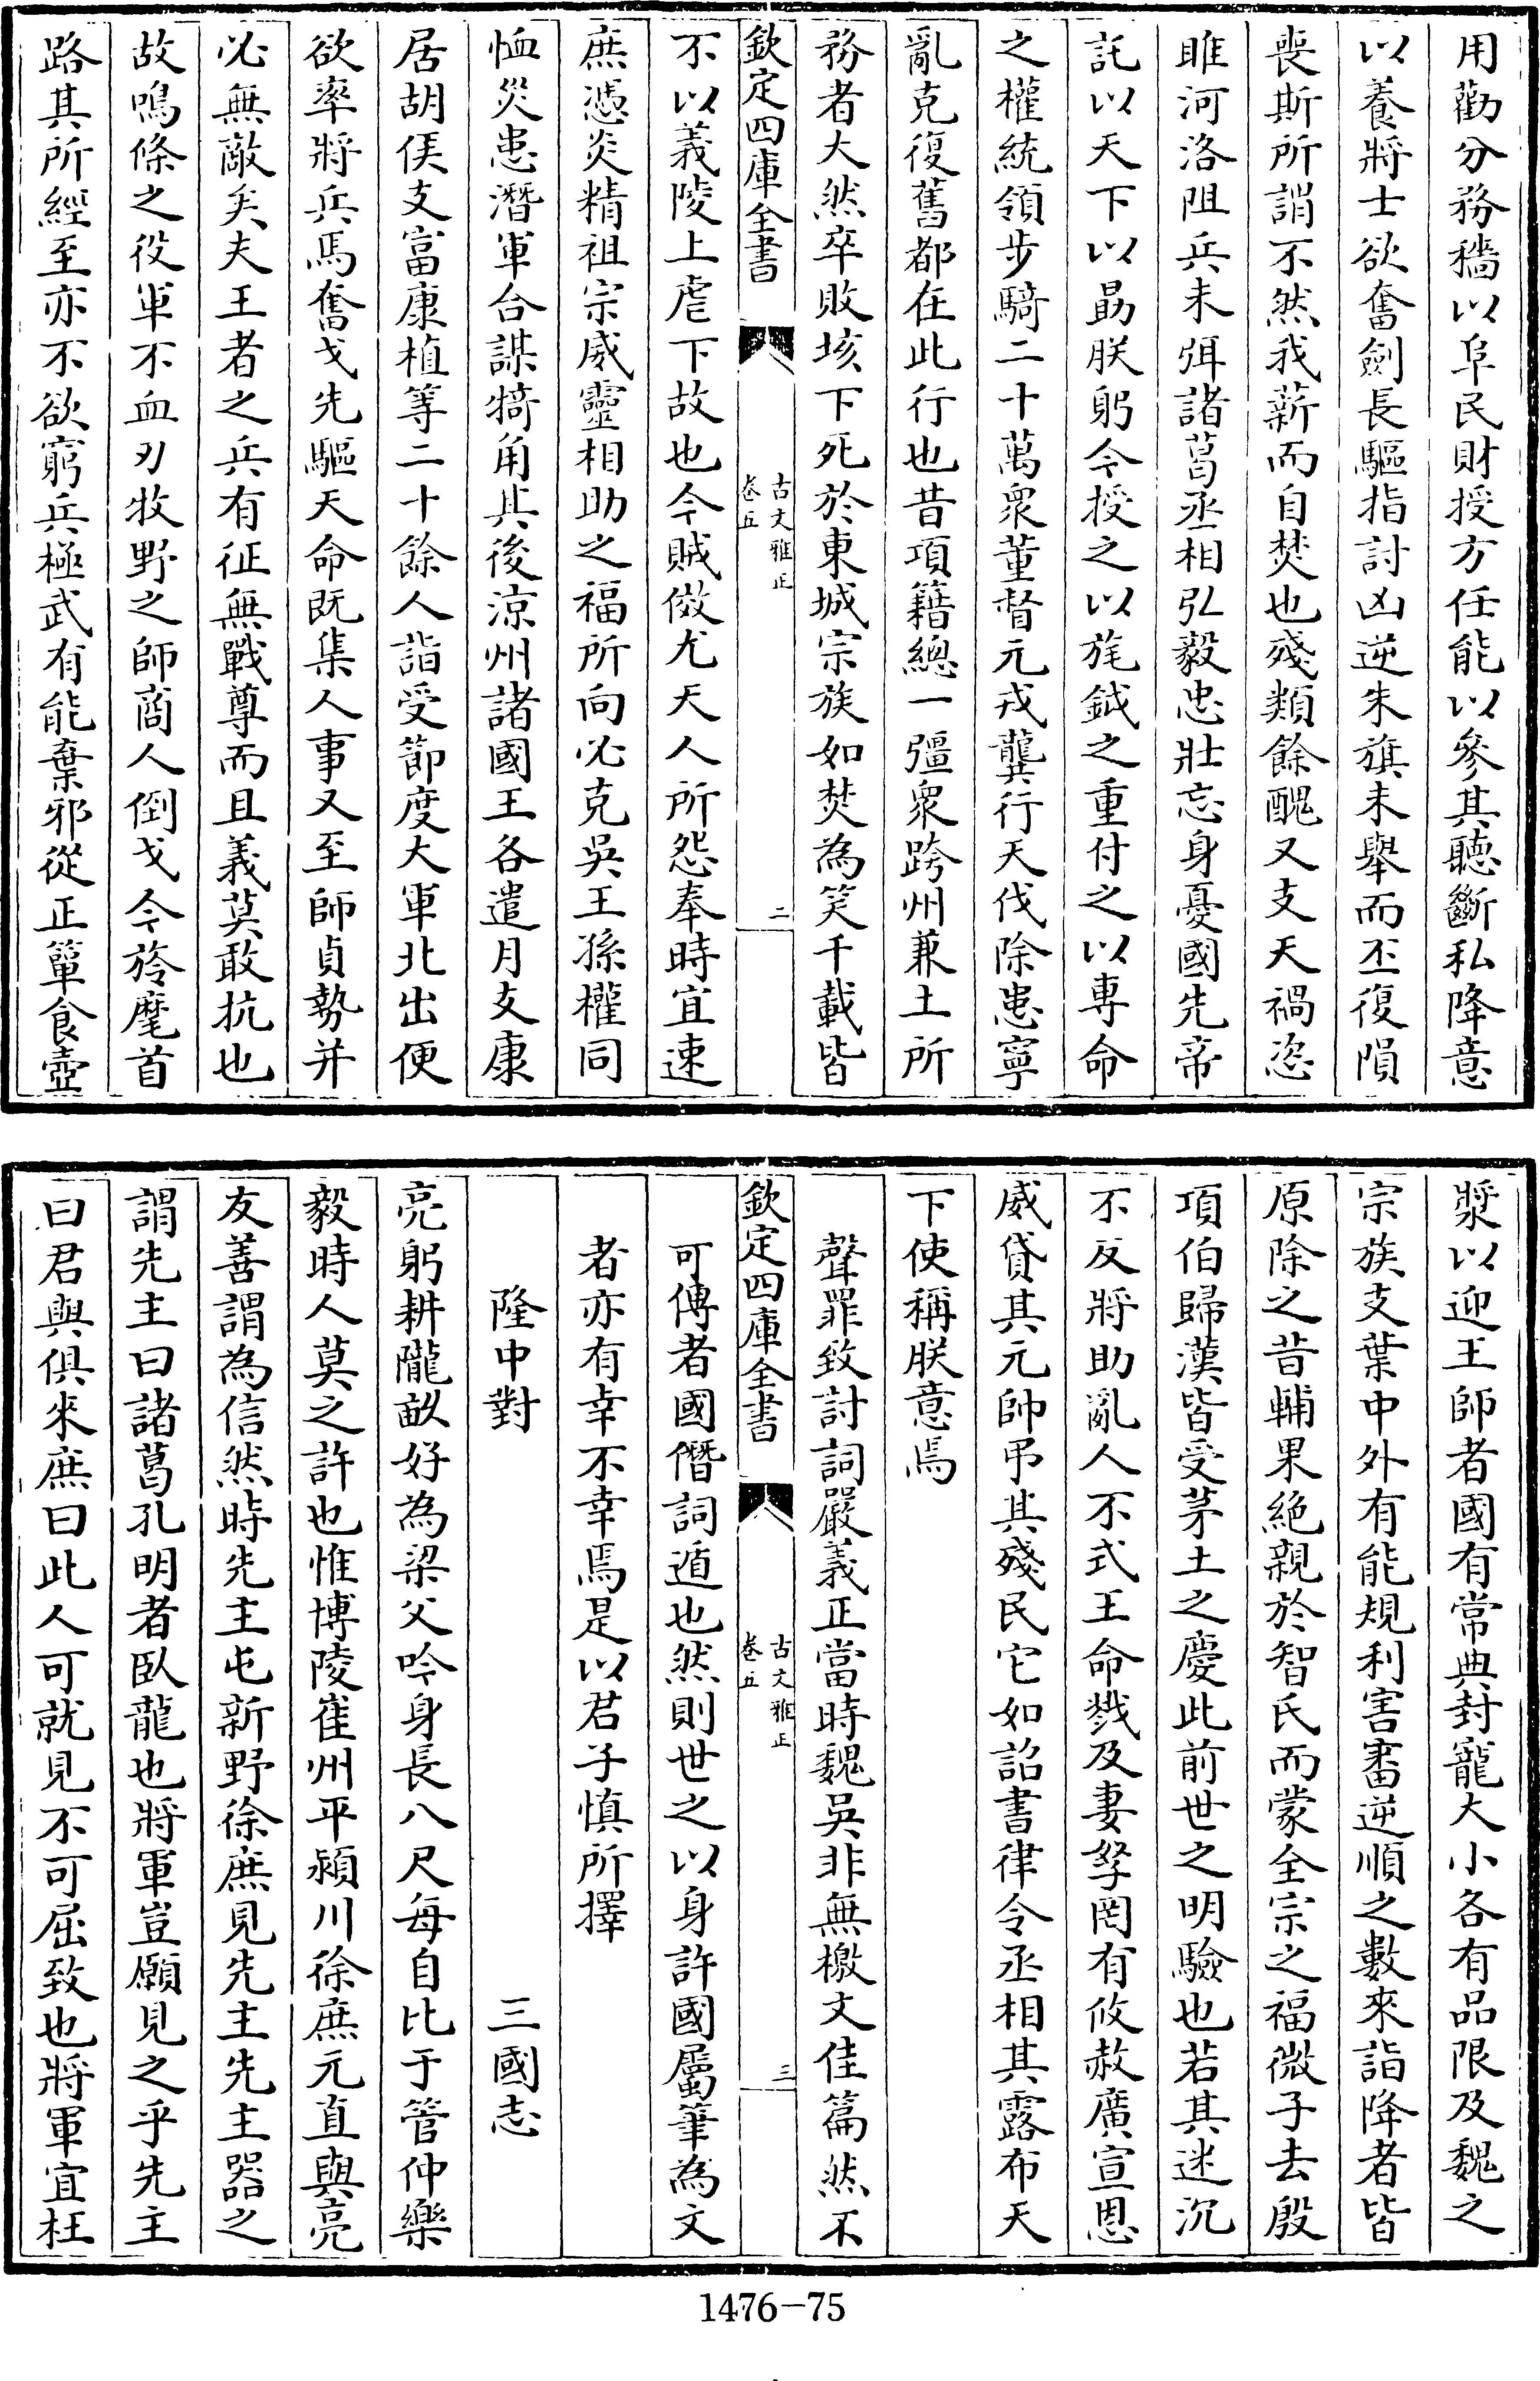 用勸分務穡以阜民財授方任能以參其聽斷私降意
以養將士欲奮劍長驅指討凶逆朱旗未舉而丕復隕
喪斯所謂不然我薪而自焚也殘類餘醜又支天禍恣
睢河洛阻兵未弭諸葛丞相弘毅忠壯忘身憂國先帝
託以天下以勗朕躬今授之以旄鉞之重付之以專命
之權統領步騎二十萬衆董督元戎龔行天伐除患寧
亂克復舊都在此行也昔項籍總一彊衆跨州兼土所
務者大然卒敗垓下死於東城宗族如焚為笑千載皆
欽定四庫全書
古文雅正
卷五
二
不以義陵上虐下故也今賊傚尤天人所怨奉時宜速
庶憑炎精祖宗威靈相助之福所向必克吳王孫權同
恤災患潛軍合謀犄角其後涼州諸國王各遣月支康
居胡侯支富康植等二十餘人詣受節度大軍北出便
欲率將兵馬奮戈先驅天命既集人事又至師貞勢并
必無敵矣夫王者之兵有征無戰尊而且義莫敢抗也
故鳴條之役軍不血刃牧野之師商人倒戈今旍麾首
路其所經至亦不欲窮兵極武有能棄邪從正簞食壺
漿以迎王師者國有常典封寵大小各有品限及魏之
宗族支葉中外有能規利害審逆順之數來詣降者皆
原除之昔輔果絕親於智氏而蒙全宗之福微子去殷
項伯歸漢皆受茅土之慶此前世之明驗也若其迷沉
不反將助亂人不式王命戮及妻孥罔有攸赦廣宣恩
威貸其元帥弔其殘民它如詔書律令丞相其露布天
下使稱朕意焉
聲罪致討詞嚴義正當時魏吳非無檄文佳篇然不
欽定四庫全書
古文雅正
卷五
三
可傳者國僭詞遁也然則世之以身許國屬筆為文
者亦有幸不幸焉是以君子慎所擇
隆中對 三國志
亮躬耕隴畝好為梁父吟身長八尺每自比于管仲樂
毅時人莫之許也惟博陵崔州平潁川徐庶元直與亮
友善謂為信然時先主屯新野徐庶見先主先主器之
謂先主曰諸葛孔明者臥龍也將軍豈願見之乎先主
曰君與俱來庶曰此人可就見不可屈致也將軍宜枉
1476-75